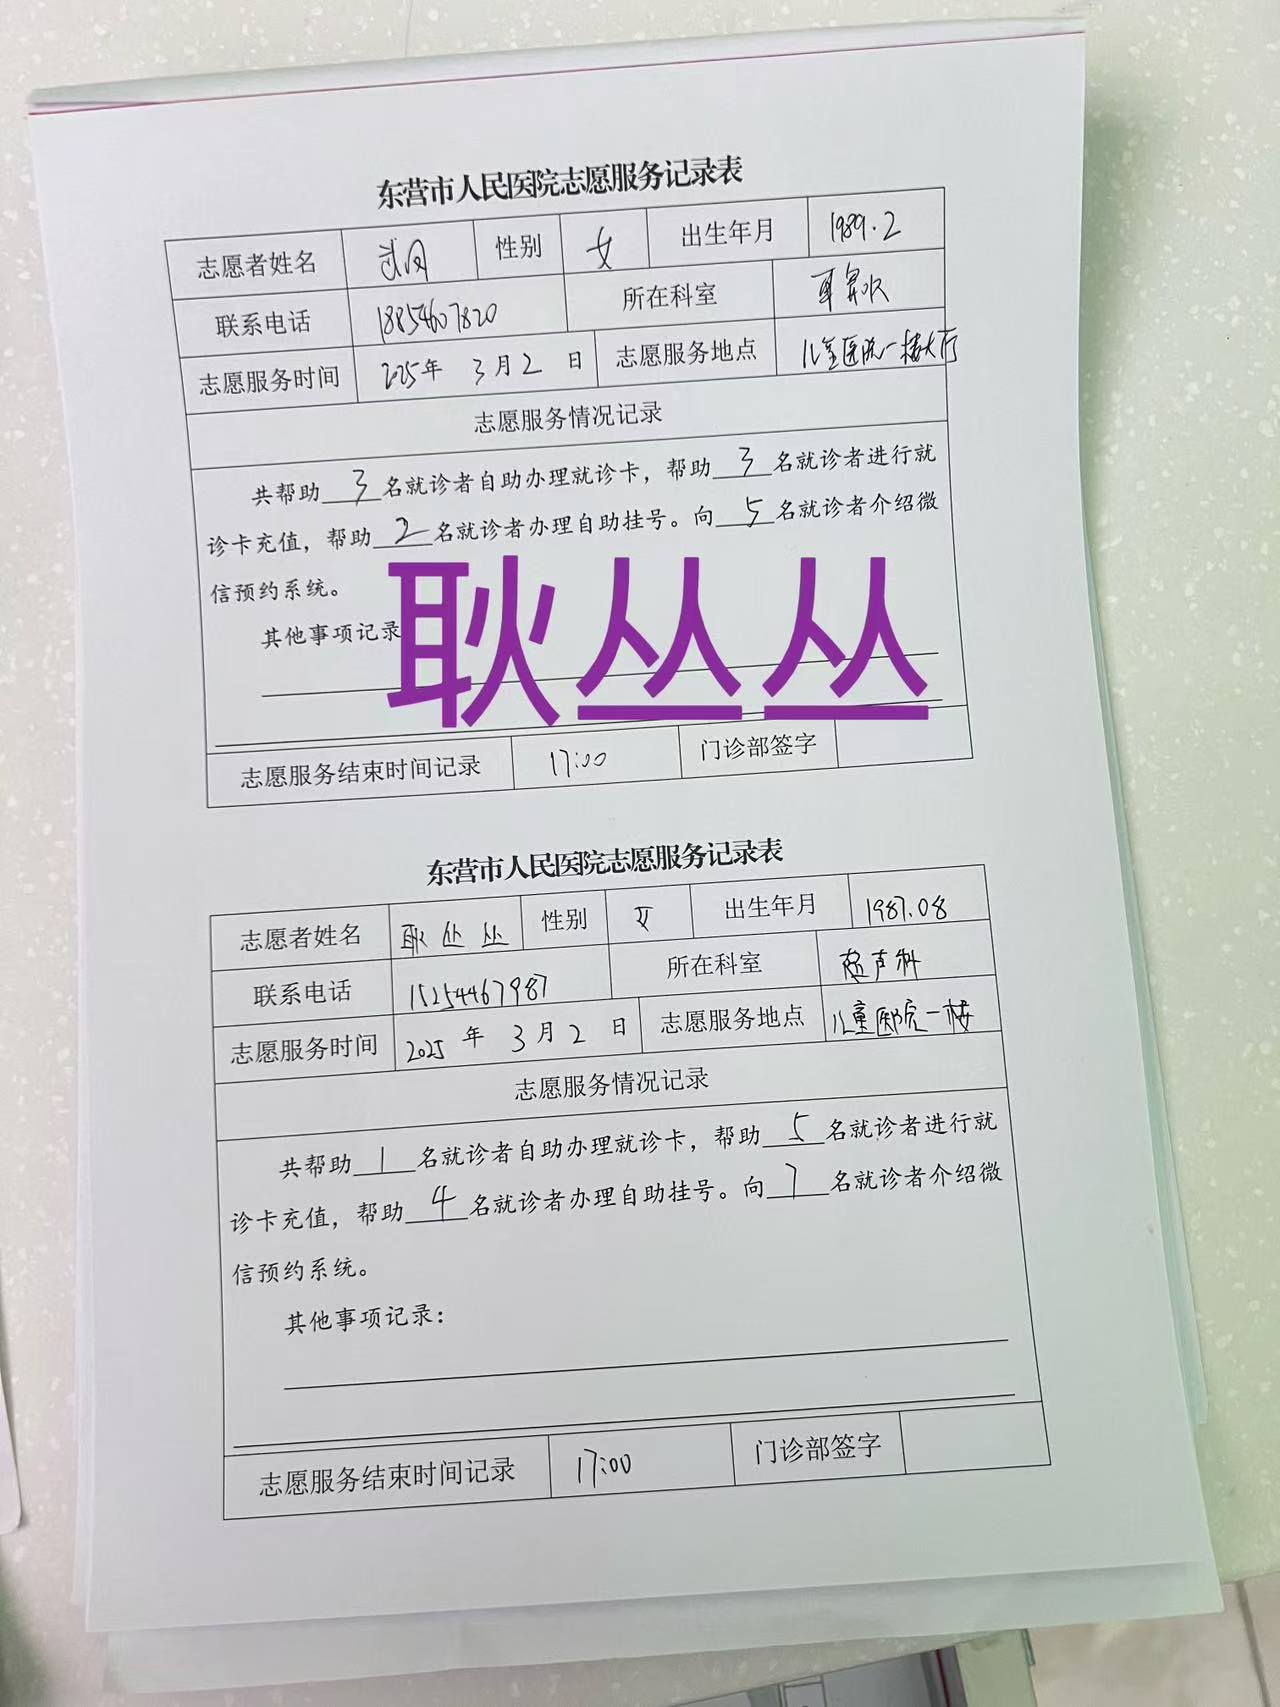 东营市人民医院志愿服务记录表
志愿者姓名 性别 女 出生年月 1989.2
联系电话 18854607820 所在科室
志愿服务时间 2025年 3月2日 志愿服务地点 儿童医院一楼大厅
志愿服务情况记录
共帮助3名就诊者自助办理就诊卡，帮助3名就诊者进行就
诊卡充值，帮助2名就诊者办理自助挂号。向5名就诊者介绍微
信预约系统。
其他事项记录
耿丛丛
志愿服务结束时间记录 17:00 门诊部签字
东营市人民医院志愿服务记录表
志愿者姓名 耿丛丛 性别 女 出生年月 1987.08
联系电话 15254467987 所在科室 超声科
志愿服务时间 2025年 3月2日 志愿服务地点 儿童医院一楼
志愿服务情况记录
共帮助1名就诊者自助办理就诊卡，帮助5名就诊者进行就
诊卡充值，帮助4名就诊者办理自助挂号。向7名就诊者介绍微
信预约系统。
其他事项记录：
志愿服务结束时间记录 17:00 门诊部签字